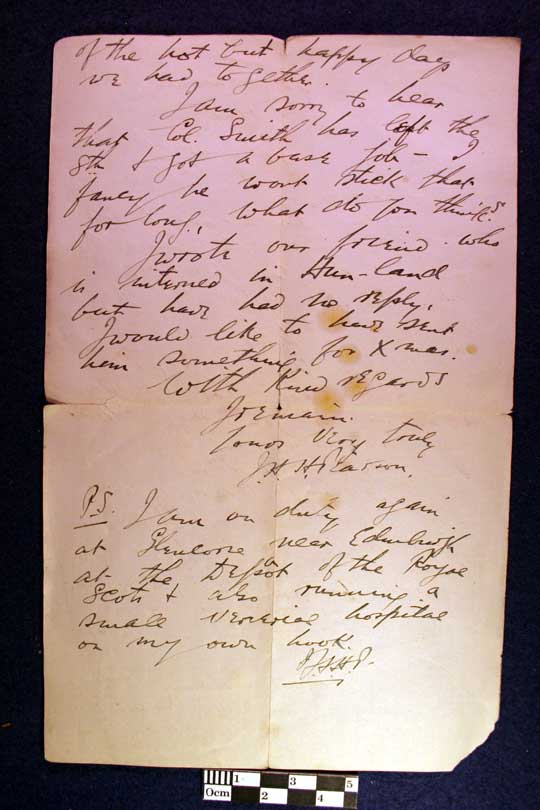 of the hot but happy days
we had together.
I am sorry to hear
that Col. Smith has left the
8th & got a base job - I
fancy he wont stick that
for long, what do you think?
I wrote our friend who
is interned in Hun-land
but have had no reply,
I would like to have sent
him something for Xmas.
With Kind regards
I remain.
Yours Very truly
J.H.H. Pearson.
P.S. I am on duty again
at Glencorse near Edinburgh
at the Depôt of the Royal
Scots & also running a
small Venereal hospital
on my own hook.
J.H.H.P.
0cm 1 2 3 4 5